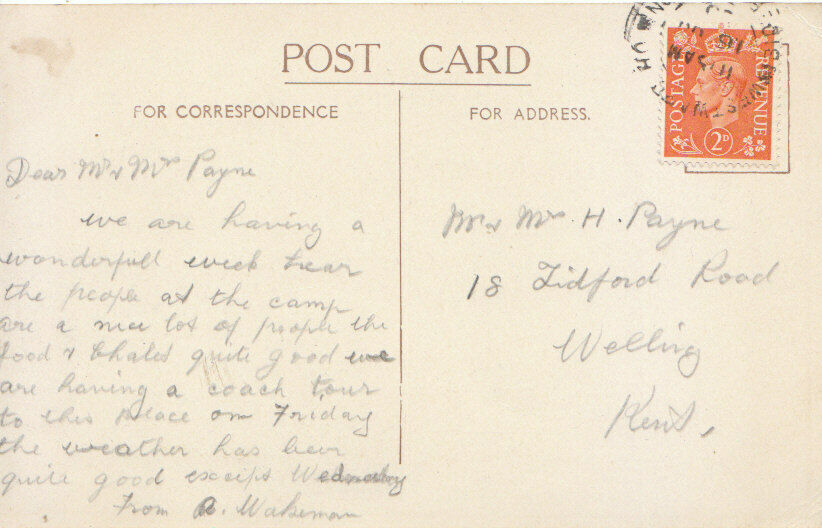 POST CARD
FOR CORRESPONDENCE
FOR ADDRESS.
POSTAGE
REVENUE
2D
WESTWARD HO
11 AM
Dear Mr & Mrs Payne
we are having a
wonderfull week hear
the people at the camp
are a nice lot of people the
food & Chalet quite good we
are having a coach tour
to this place on Friday
the weather has been
quite good except Wednesday
From A. Wakeman
Mr & Mrs H. Payne
18 Tidford Road
Welling
Kent.